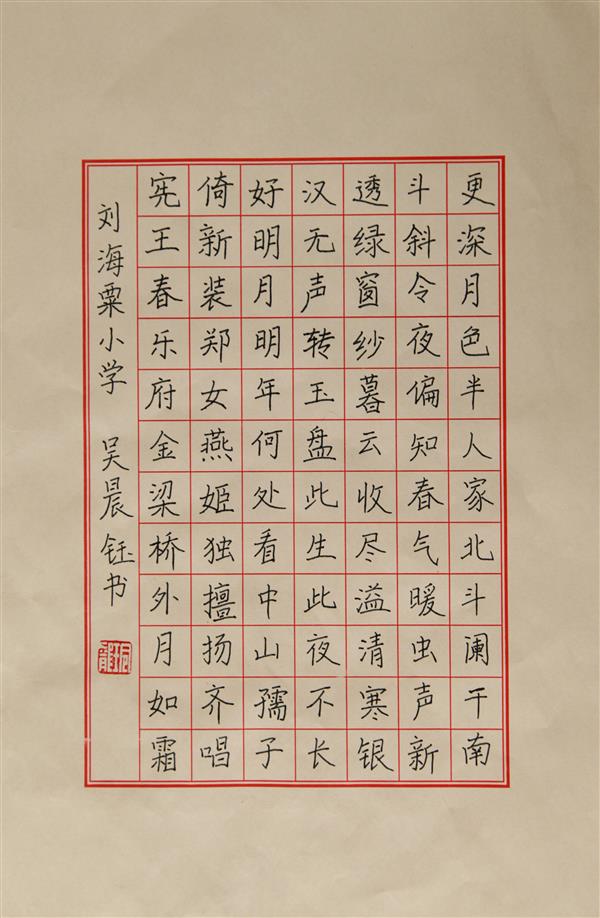 更深月色半人家北斗阑干南
斗斜令夜偏知春气暖虫声新
透绿窗纱暮云收尽溢清寒银
汉无声转玉盘此生此夜不长
好明月明年何处看中山孺子
倚新装郑女燕姬独擅扬齐唱
宪王春乐府金梁桥外月如霜
刘海粟小学 吴晨钰书